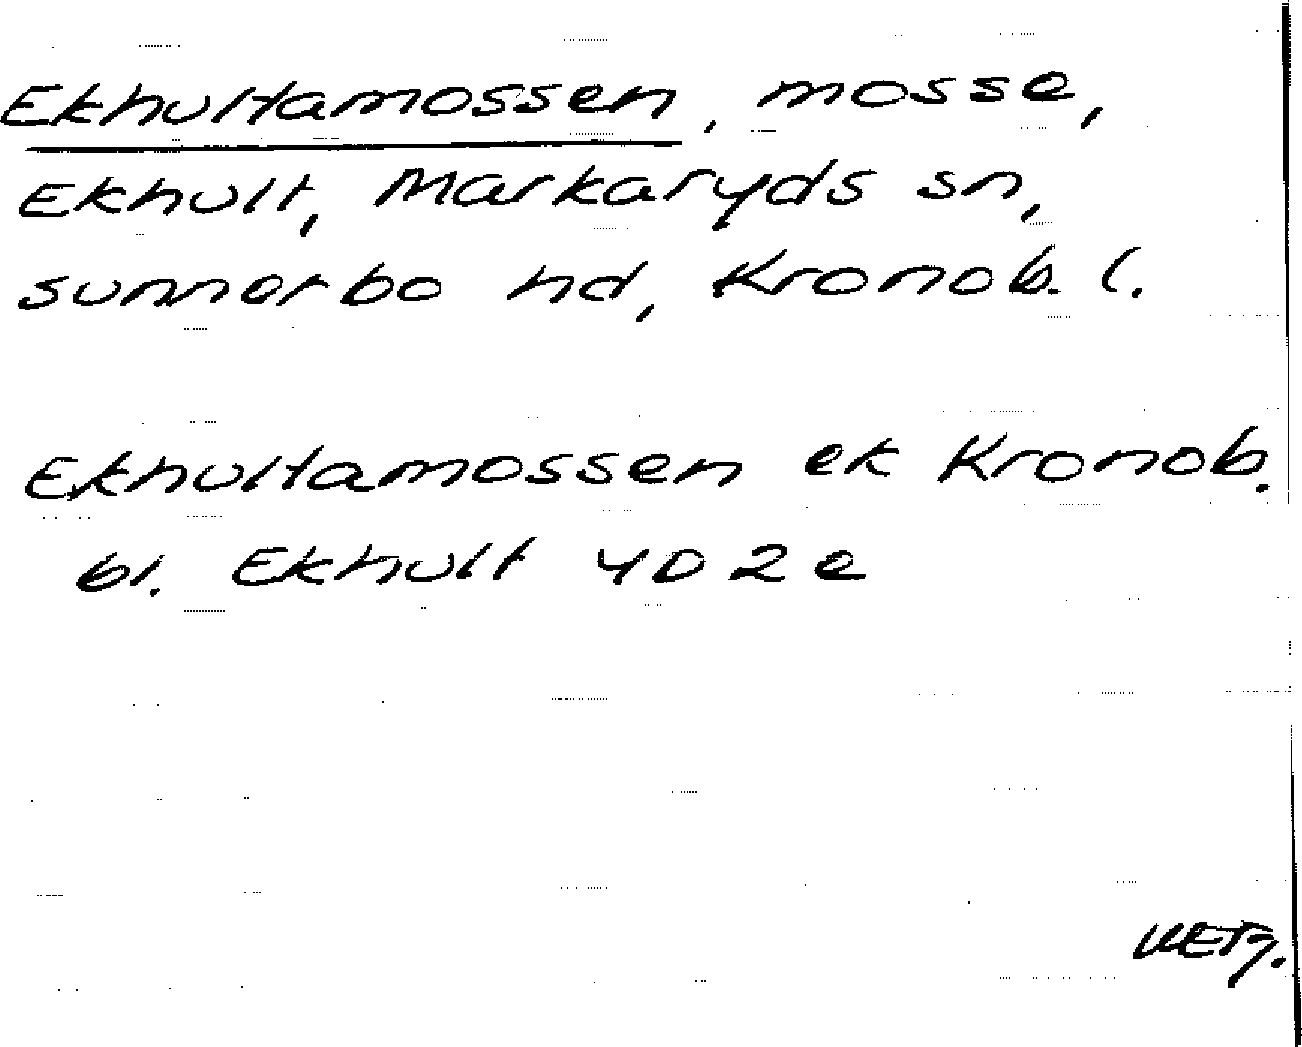 Ekhultamossen, mosse,
Ekhult, Markaryds sn,
sunnerbo hd, Kronob. l.
Ekhultamossen ek Kronob.
bl. Ekhult 4D2e